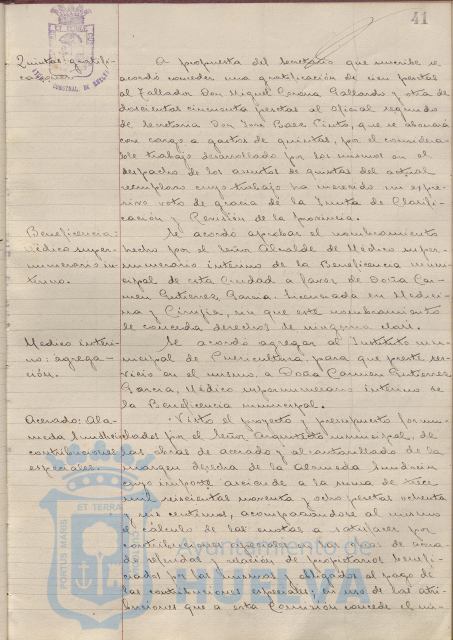 41
Quintas: gratifi-
caciones
A propuesta del Secretario que suscribe se
acordó conceder una gratificación de cien pesetas
al Tallador Don Miguel Corona Gallardo y otra de
doscientas cincuenta pesetas al Oficial segundo
de Secretaria Don José Baez Pinto, que se abonará
con cargo a gastos de quintas, por el considera-
ble trabajo desarrollado por los mismos en el
despacho de los asuntos de quintas del actual
reemplazo cuyo trabajo ha merecido un expre-
sivo voto de gracia de la Junta de Clasifi-
cación y Revisión de la Provincia.
Beneficencia:
Médico super-
numerario in-
terino.
Se acordó aprobar el nombramiento
hecho por el Señor Alcalde de Médico super-
numerario interino de la Beneficencia muni-
cipal de esta Ciudad a favor de Doña Car-
men Gutierrez Garcia, Licenciada en Medici-
na y Cirugía, sin que este nombramiento
le conceda derechos de ninguna clase.
Medico interi-
no: agrega-
ción.
Se acordó agregar al Instituto mu-
nicipal de Puericultura, para que preste ser-
vicio en el mismo, a Doña Carmen Gutierrez
Garcia, Médico supernumerario interino de
la Beneficencia municipal.
Acerado: Ala-
meda Sundheim
contribuciones
especiales.
Visto el proyecto y presupuesto formu-
lados por el Señor Arquitecto municipal, de
las obras de acerado y alcantarillado de la
margen derecha de la Alameda Sundheim
cuyo importe asciende a la suma de trece
mil seiscientas noventa y ocho pesetas ochenta
y seis centimos, acompañandose al mismo
el cálculo de las cuotas a satisfacer por
contribuciones especiales en las obras de acera-
do referidas y relación de propietarios benefi-
ciados por las mismas y obligados al pago de
las contribuciones especiales; en uso de las atri-
buciones que a esta Comisión concede el nú-
PORTUS MARIS ET TERRAE CUSTODIA
Ayuntamiento de
HUELVA